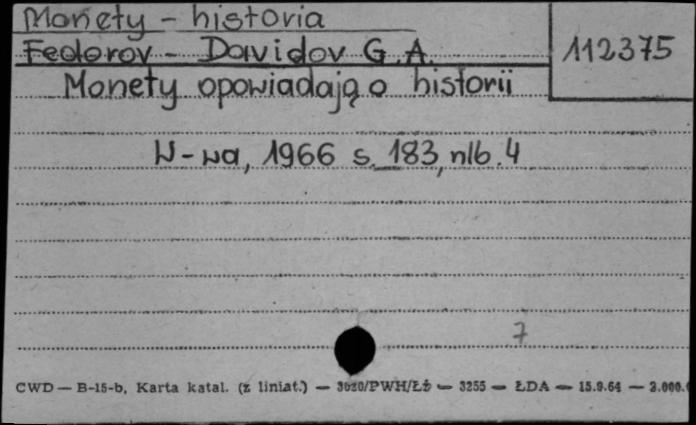 Monety - historia
Fedorov - Davidov G.A. 112375
Monety opowiadają o historii
W-wa, 1966 s. 183, nlb. 4
7
CWD — B-15-b, Karta katal. (z liniat.) — 3020/PWH/ŁŻ — 3255 — ŁDA — 15.9.64 — 3.000.